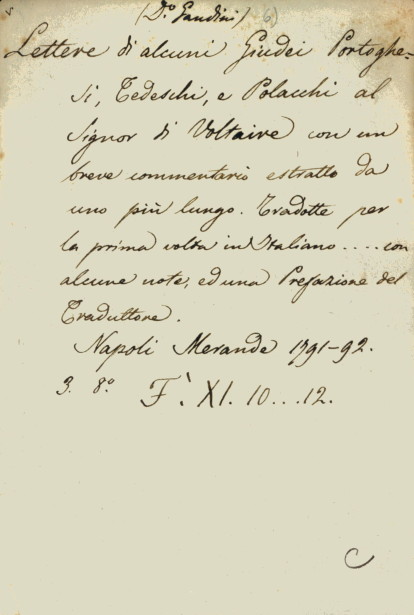 (D.º Gaudini) 6)
Lettere di alcuni Giudei Portoghe-
si, Tedeschi, e Polacchi al
Signor di Voltaire con un
breve commentario estratto da
uno più lungo. Tradotte per
la prima volta in Italiano .... con
alcune note, ed una Prefazione del
Traduttore.
Napoli Merande 1791-92.
3. 8.º F.` XI. 10...12.
C